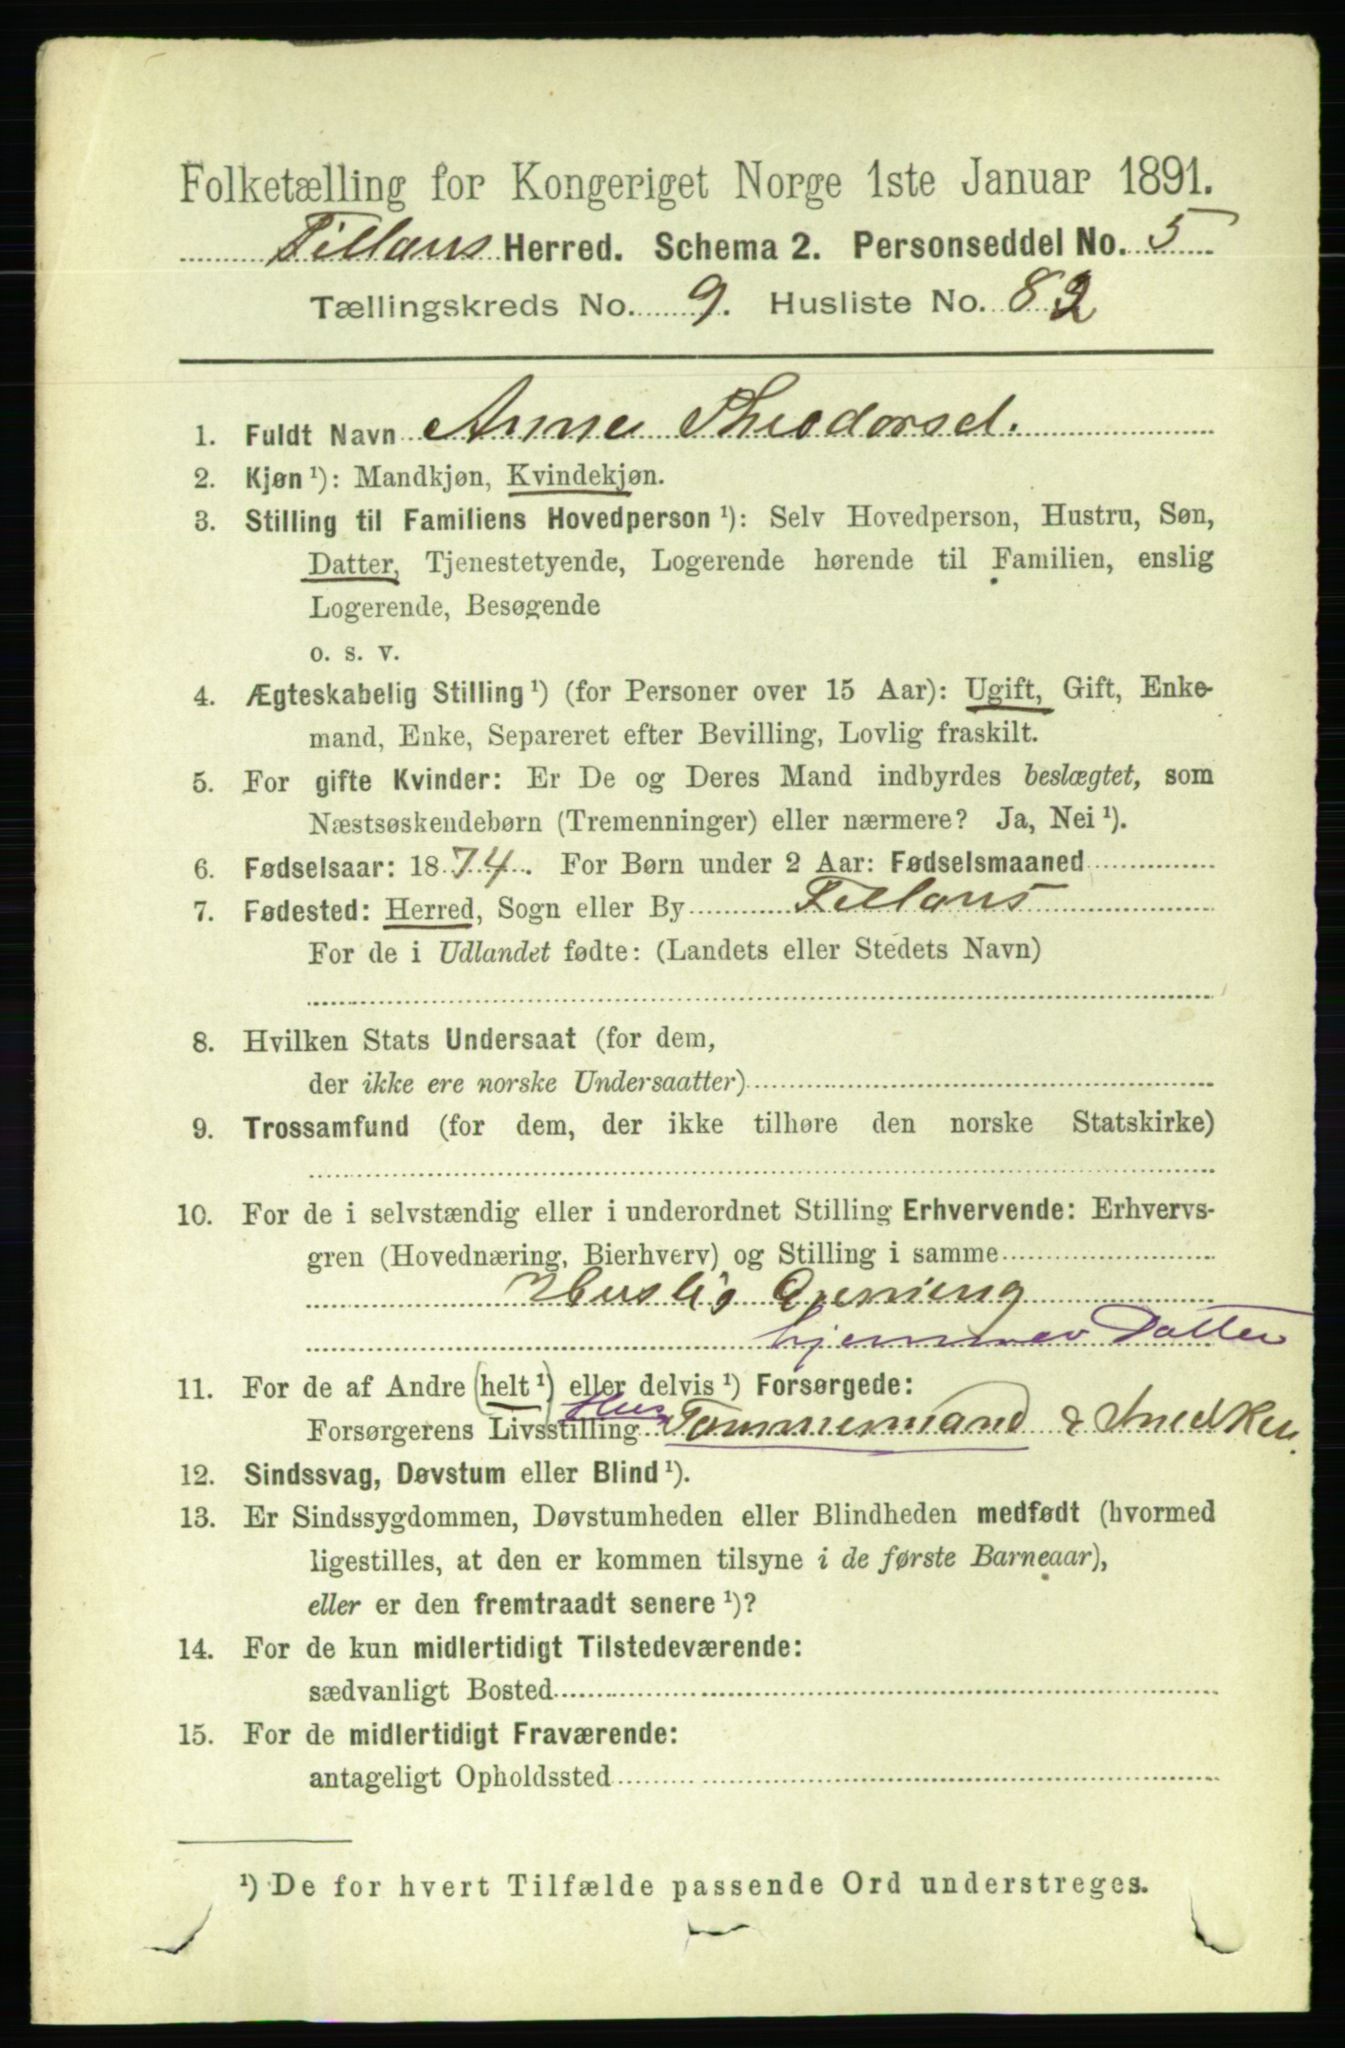 Folketælling for Kongeriget Norge 1ste Januar 1891.
Fillans Herred. Schema 2. Personseddel No. 5
Tællingskreds No. 9. Husliste No. 82
1. Fuldt Navn Anne Theodorsd.
2. Kjøn ¹): Mandkjøn, Kvindekjøn.
3. Stilling til Familiens Hovedperson ¹): Selv Hovedperson, Hustru, Søn,
Datter, Tjenestetyende, Logerende hørende til Familien, enslig
Logerende, Besøgende
o. s. v.
4. Ægteskabelig Stilling ¹) (for Personer over 15 Aar): Ugift, Gift, Enke-
mand, Enke, Separeret efter Bevilling, Lovlig fraskilt.
5. For gifte Kvinder: Er De og Deres Mand indbyrdes beslægtet, som
Næstsøskendebørn (Tremenninger) eller nærmere? Ja, Nei ¹).
6. Fødselsaar: 1874. For Børn under 2 Aar: Fødselsmaaned
7. Fødested: Herred, Sogn eller By Fillans
For de i Udlandet fødte: (Landets eller Stedets Navn)
8. Hvilken Stats Undersaat (for dem,
der ikke ere norske Undersaatter)
9. Trossamfund (for dem, der ikke tilhøre den norske Statskirke)
10. For de i selvstændig eller i underordnet Stilling Erhvervende: Erhvervs-
gren (Hovednæring, Bierhverv) og Stilling i samme
Huslig Gjerning
hjemmev Datter
11. For de af Andre (helt ¹) eller delvis ¹) Forsørgede:
Forsørgerens Livsstilling Hus Tømmermand & Snedker.
12. Sindssvag, Døvstum eller Blind ¹).
13. Er Sindssygdommen, Døvstumheden eller Blindheden medfødt (hvormed
ligestilles, at den er kommen tilsyne i de første Barneaar),
eller er den fremtraadt senere ¹)?
14. For de kun midlertidigt Tilstedeværende:
sædvanligt Bosted
15. For de midlertidigt Fraværende:
antageligt Opholdssted
¹) De for hvert Tilfælde passende Ord understreges.